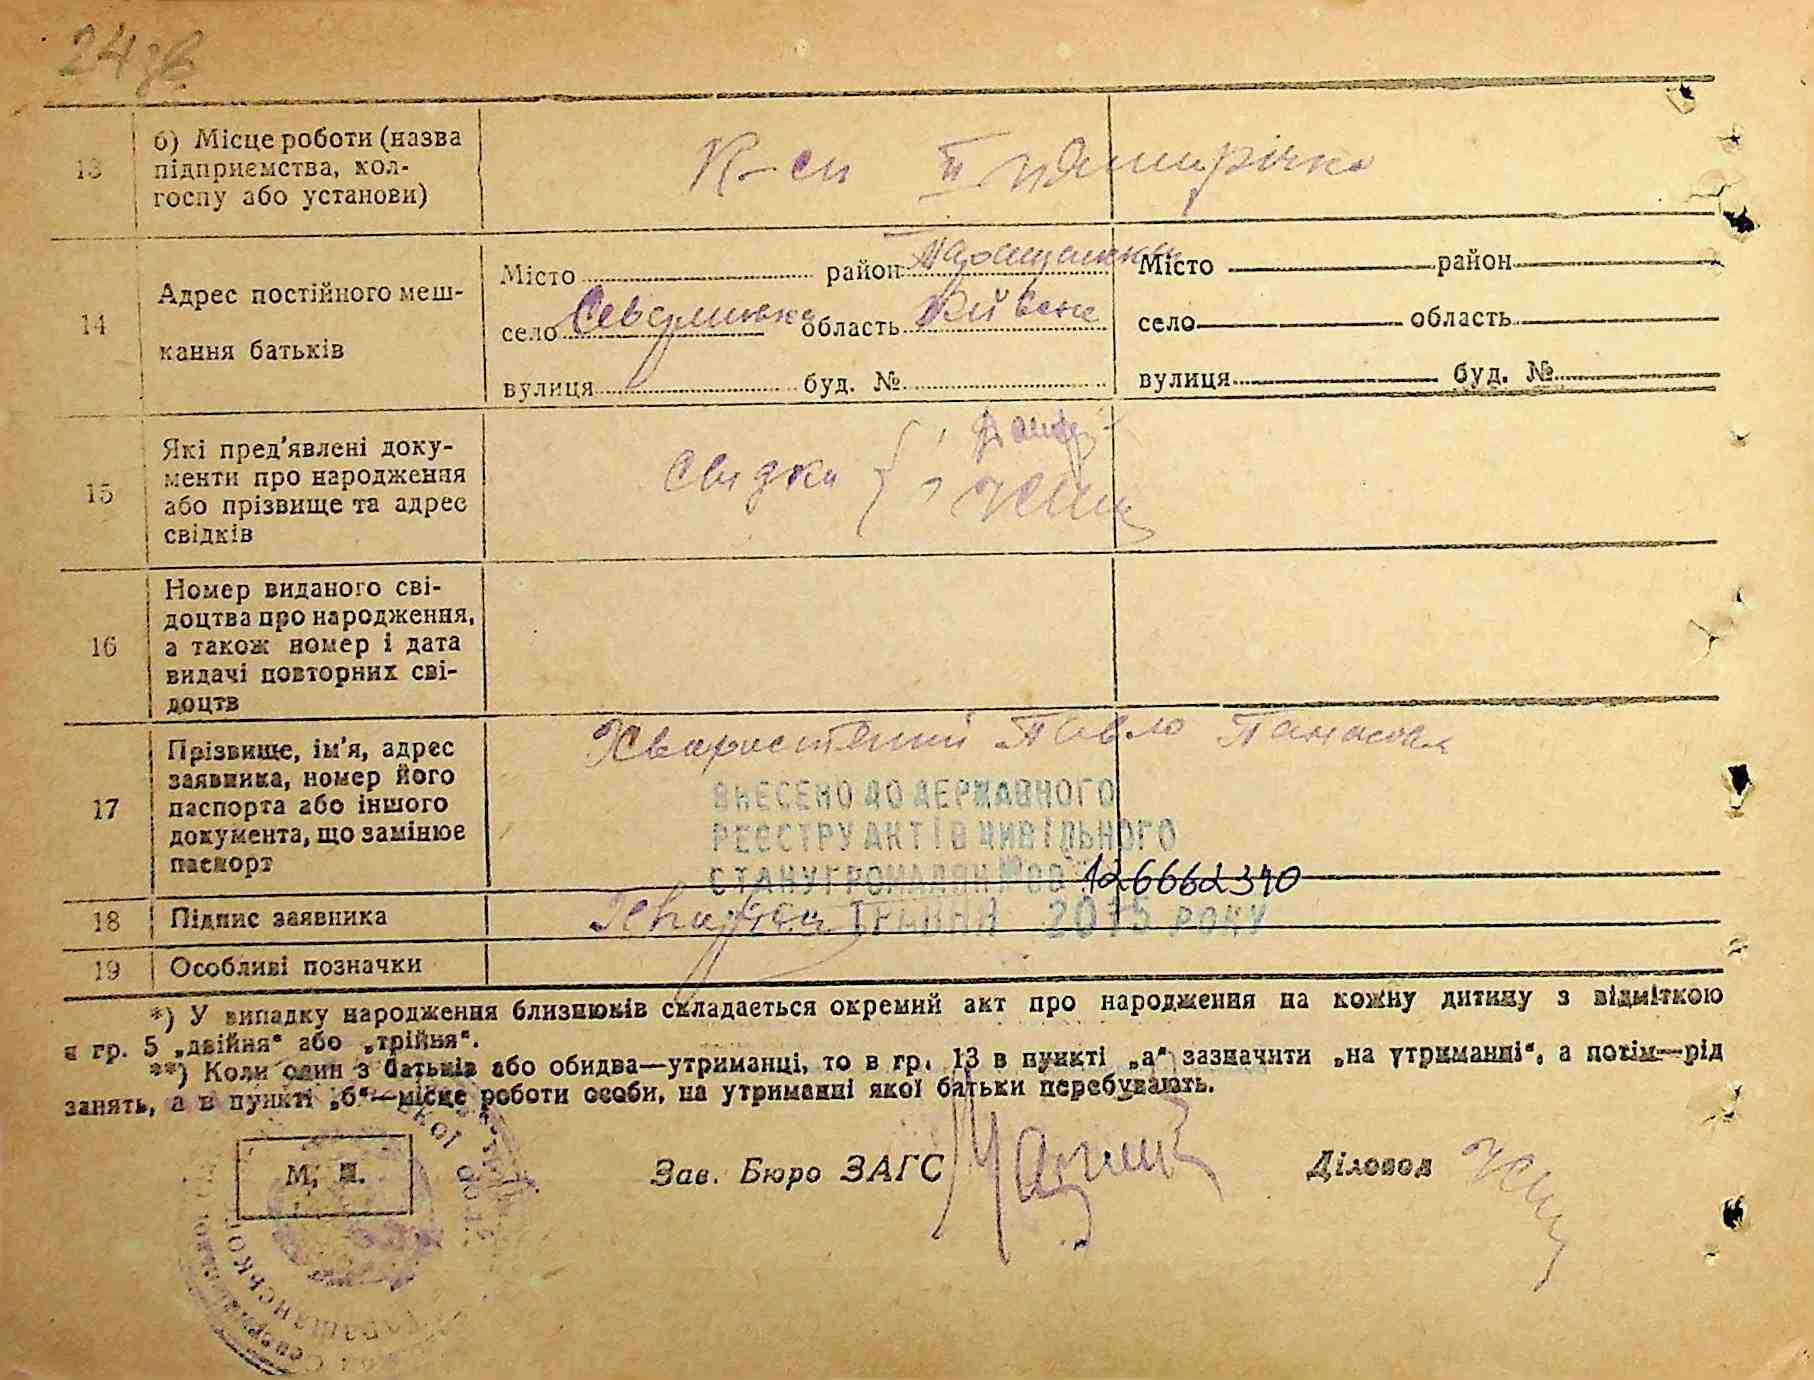 24 зв
13
б) Місце роботи (назва
підприємства, кол-
госпу або установи)
К-сп ІІ пятирічка
14
Адрес постійного меш-
кання батьків
Місто район Таращанськ
село область Київськ
вулиця буд. №
Місто район
село область
вулиця буд. №
15
Які пред'явлені доку-
менти про народження
або прізвище та адрес
свідків
Свідки
16
Номер виданого сві-
доцтва про народження,
а також номер і дата
видачі повторних сві-
доцтв
17
Прізвище, ім'я, адрес
заявника, номер його
паспорта або іншого
документа, що замінює
паспорт
Павло Панасов
ВНЕСЕНО ДО ДЕРЖАВНОГО
РЕЄСТРУ АКТІВ ЦИВІЛЬНОГО
СТАНУ ГРОМАДЯН
ТРАВНЯ 2015 РОКУ
18
Підпис заявника
19
Особливі позначки
*) У випадку народження близнюків складається окремий акт про народження на кожну дитину з відміткою
в гр. 5 „двійня" або „трійня".
**) Коли один з батьків або обидва—утриманці, то в гр. 13 в пункті „а" зазначити „на утриманні", а потім—рід
занять, а в пункті „б"—місце роботи особи, на утриманні якої батьки перебувають.
М. П.
Зав. Бюро ЗАГС
Діловод